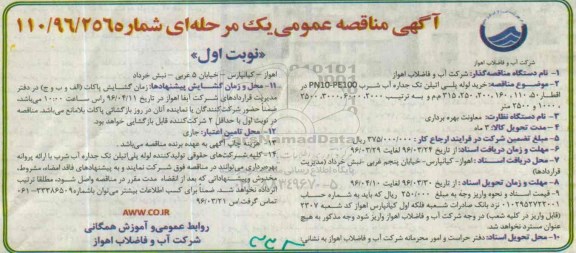 آگهی مناقصه عمومی یک مرحله‌ای شماره ۱۱۰/۹۶/۲۵۶۵
«نوبت اول»
شرکت آب و فاضلاب اهواز
۱- نام دستگاه مناقصه‌گذار: شرکت آب و فاضلاب اهواز
۲- موضوع مناقصه: خرید لوله پلی‌اتیلن تک جداره آب شرب PN10-PE100 در
اقطار ۵۰، ۱۱۰، ۱۶۰، ۲۰۰، ۲۵۰، ۳۱۵ م‌م و به ترتیب
، ۱۰۰۰ و ۲۵۰ متر
۳- دستگاه نظارت: معاونت بهره برداری
۴- مدت تحویل کالا: ۳ ماه
۵- مبلغ تضمین شرکت در فرایند ارجاع کار: ۳۷۵/۰۰۰/۰۰۰ ریال
۶- مهلت و زمان دریافت اسناد: از تاریخ ۹۶/۰۳/۲۴ لغایت ۹۶/۰۳/۲۹
۷- محل دریافت اسناد: اهواز- کیانپارس- خیابان پنجم غربی- نبش خرداد (مدیریت
قراردادها)
۸- مهلت و زمان تحویل اسناد: از تاریخ ۹۶/۰۳/۳۰ لغایت ۹۶/۰۴/۱۰
۹- قیمت اسناد و نحوه واریز وجه به مبلغ ۲۵۰/۰۰۰ ریال که باید به شماره حساب
نزد بانک صادرات شعبه فلکه اول کیانپارس اهواز کد شعبه ۲۳۰۷
(قابل واریز در کلیه شعب) در وجه شرکت آب و فاضلاب اهواز واریز شود وجه مذکور به هیچ
عنوان مسترد نخواهد شد.
۱۰- محل تحویل اسناد: دفتر حراست و امور محرمانه شرکت آب و فاضلاب اهواز به نشانی:
اهواز - کیانپارس - خیابان ۵ غربی - نبش خرداد
۱۱- محل و زمان گشایش پیشنهادها: زمان گشایش پاکات (الف و ب و ج) در دفتر
مدیریت قراردادهای شرکت آبفا اهواز در تاریخ ۹۶/۰۴/۱۱ راس ساعت ۱۰:۰۰ می‌باشد.
ضمنا حضور شرکت‌کنندگان یا نماینده آنان در روز بازگشایی پاکات بلامانع می‌باشد. مناقصه
در نوبت اول با حداقل ۲ شرکت‌کننده قابل بازگشایی خواهد بود.
۱۲- محل تامین اعتبار: جاری
۱۳- هزینه چاپ آگهی به عهده برنده مناقصه می‌باشد.
۱۴- کلیه شرکت‌های حقوقی تولید‌کننده لوله پلی‌اتیلن تک جداره آب شرب با ارائه پروانه
بهره‌برداری می‌توانند در مناقصه فوق شرکت نمایند و به پیشنهادهای فاقد امضاء، مشروط،
مخدوش و پیشنهاداتی که بعد از انقضاء مدت مقرر در مناقصه واصل شود، مطلقا ترتیب
اثر داده نخواهد شد. ضمناً برای کسب اطلاعات بیشتر می‌توان باشماره
تماس گرفت. س ۹۶/۰۳/۲۱
WWW.AWW.CO.IR
روابط عمومی و آموزش همگانی
شرکت آب و فاضلاب اهواز